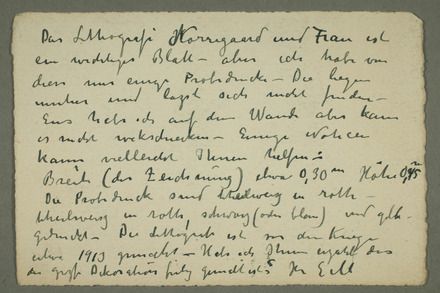 Das Lithografi Norregaard und Frau ist
ein wichtiges Blatt – aber ich habe von
dies nur einige Probedrucke – Die liegen
und lasst sich nicht finden –
Eins hab ich auf dem Wand aber kann
es nicht – Einige Notizen
kann vielleicht Ihnen helfen –
Breite (der Zeichnung) etwa 0,30 m Höhe 0,45 m
Die Probedruck sind theilweis in roth –
theilweis in roth, schwarz (oder blau) und gelb –
gedruckt – Die Lithografi ist vor dem Kriege
etwa 1913 gemacht – Hab ich Ihnen das
die grosse Dekoration fertig ist? Ihr E M